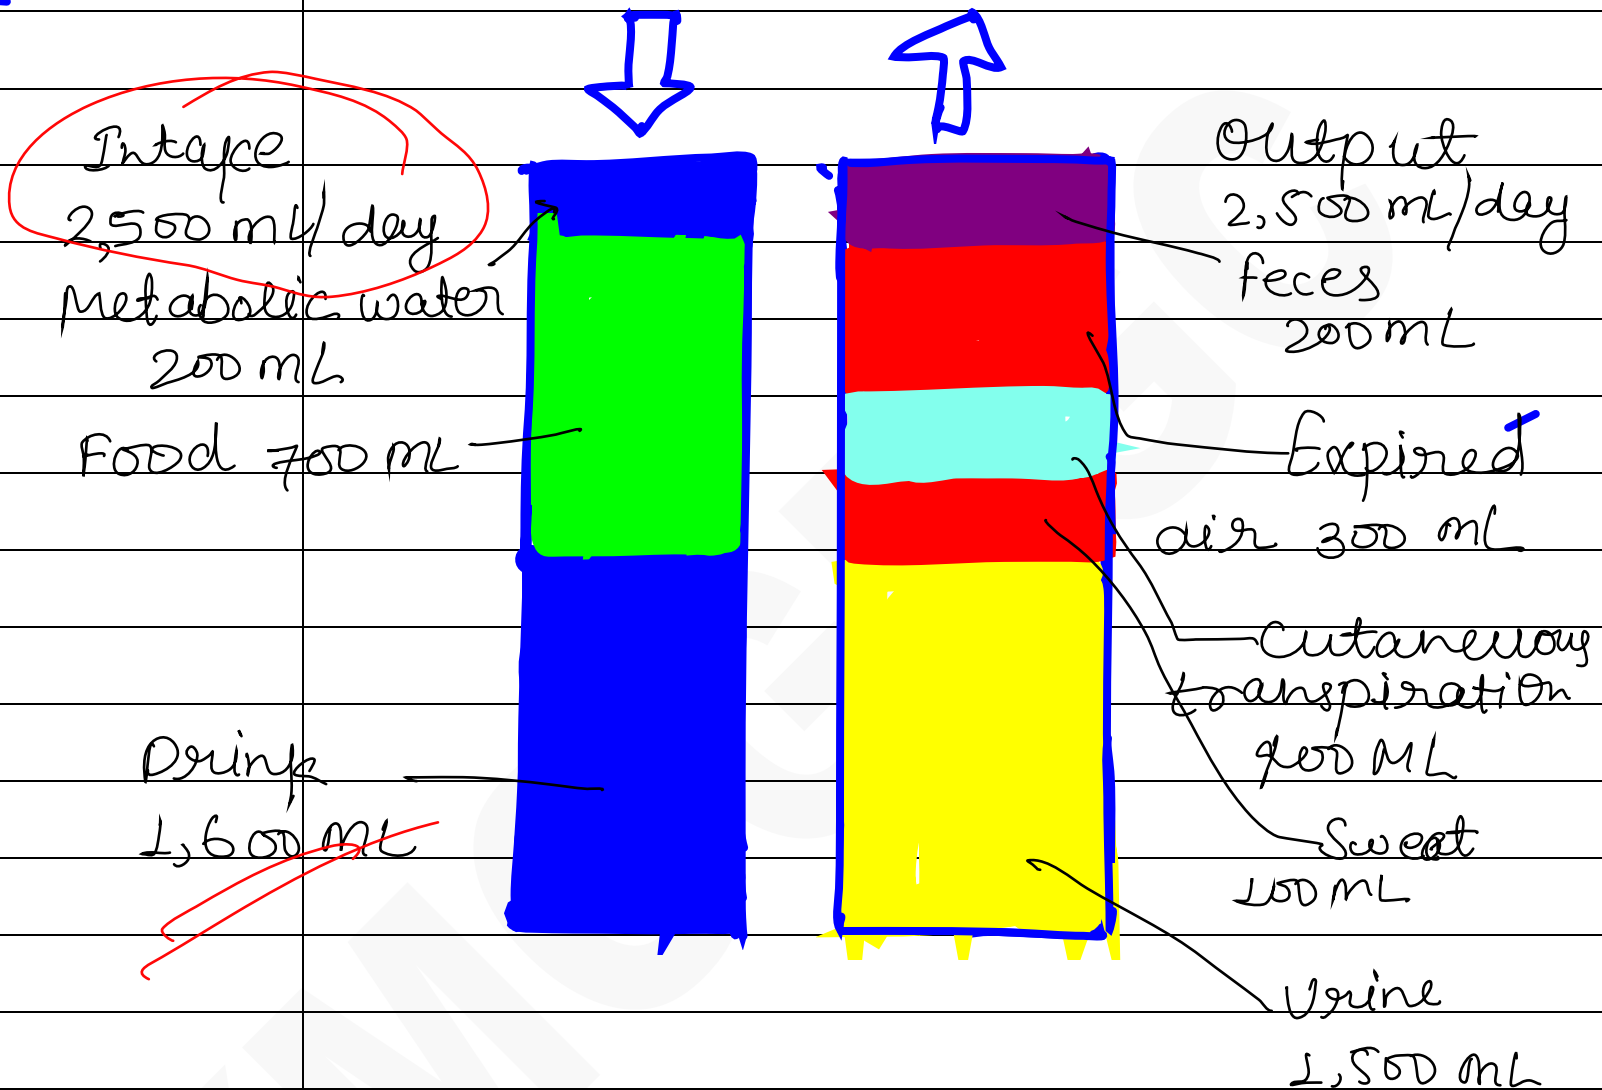 Intake
2,500 mL/day
Metabolic water
200 mL
Food 700 mL
Drink
1,600 mL
Output
2,500 mL/day
feces
200 mL
Expired
air 300 mL
Cutaneuous
transpiration
400 ML
Sweat
100 ML
Urine
1,500 mL